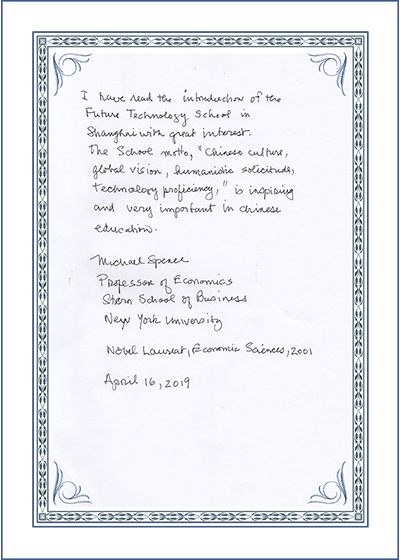 I have read the introduction of the
Future Technology School in
Shanghai with great interest.
The School motto, "Chinese culture,
global vision, humanistic solicitude,
technology proficiency," is inspiring
and very important in chinese
education.
Michael Spence
Professor of Economics
Stern School of Business
New York University
Nobel Laureat, Economic Sciences, 2001
April 16, 2019